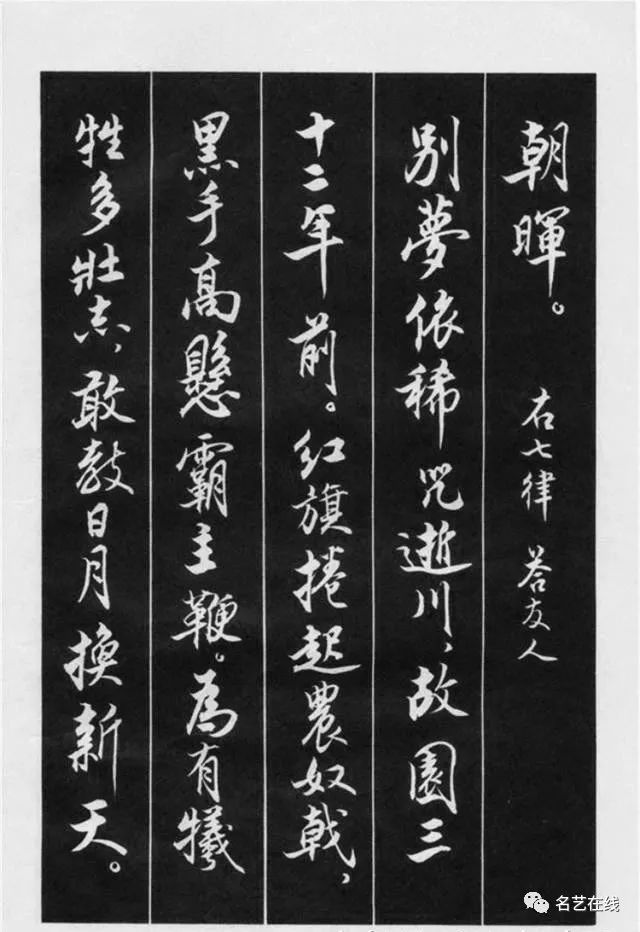 朝暉。 右七律 答友人
别夢依稀咒逝川，故園三
十二年前。红旗捲起農奴戟，
黑手高懸霸主鞭。為有犧
牲多壯志，敢教日月換新天。
名艺在线